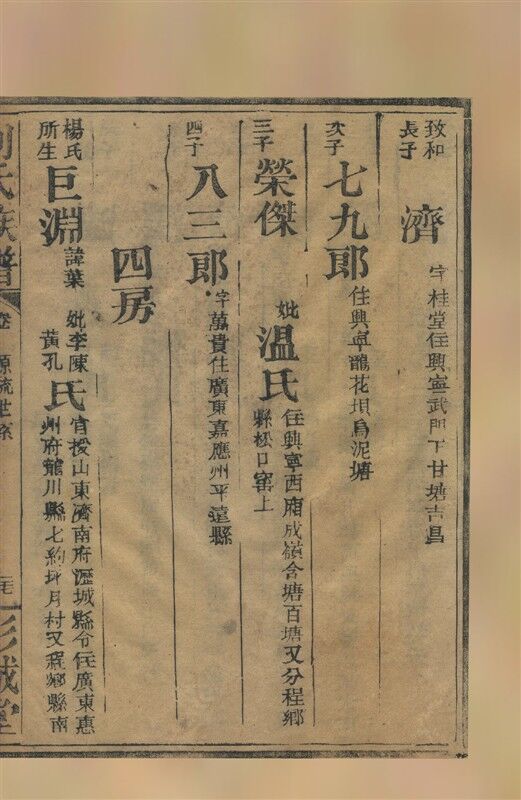 致和長子 濟 字桂堂住興寧武門下甘塘吉昌
次子 七九郎 住興寧鵲花垻烏泥塘
三子 榮傑 妣溫氏 住興寧西廂成嶺含塘百塘又分程鄉縣松口窰上
四子 八三郎 字萬貴住廣東嘉應州平遠縣
四房
楊氏所生 巨淵 諱葉 妣李陳黃孔氏 官授山東濟南府瀝城縣令住廣東惠州府龍川縣七約坪月村又程鄉縣南
劉氏族譜 卷 源流世系 彭城堂